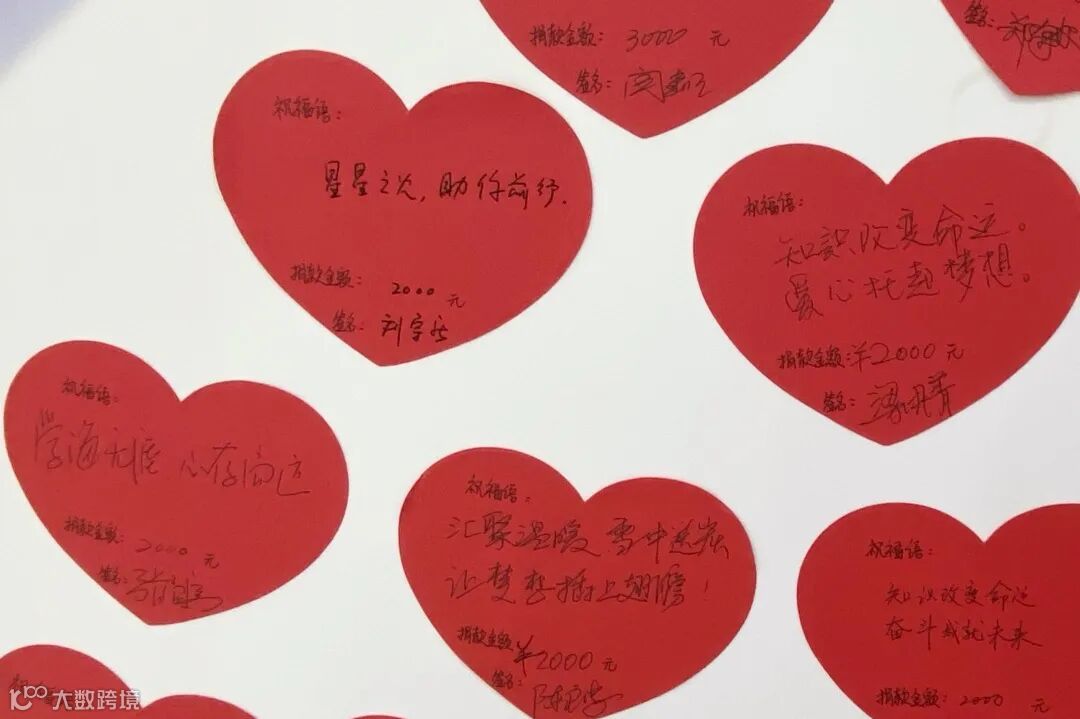 捐款金额： 3000 元
签名：
签名：
祝福语：
星星之火，助你前行.
捐款金额： 2000 元
签名： 刘宇
祝福语：
知识改变命运。
爱心托起梦想。
捐款金额：¥2000 元
签名：
祝福语：
学海无涯 心存高远
捐款金额： 2000 元
签名：
祝福语：
汇聚温暖 雪中送炭
让梦想插上翅膀！
捐款金额：¥2000 元
签名：
祝福语：
知识改变命运
奋斗成就未来
捐款金额： 2000 元
大数跨境